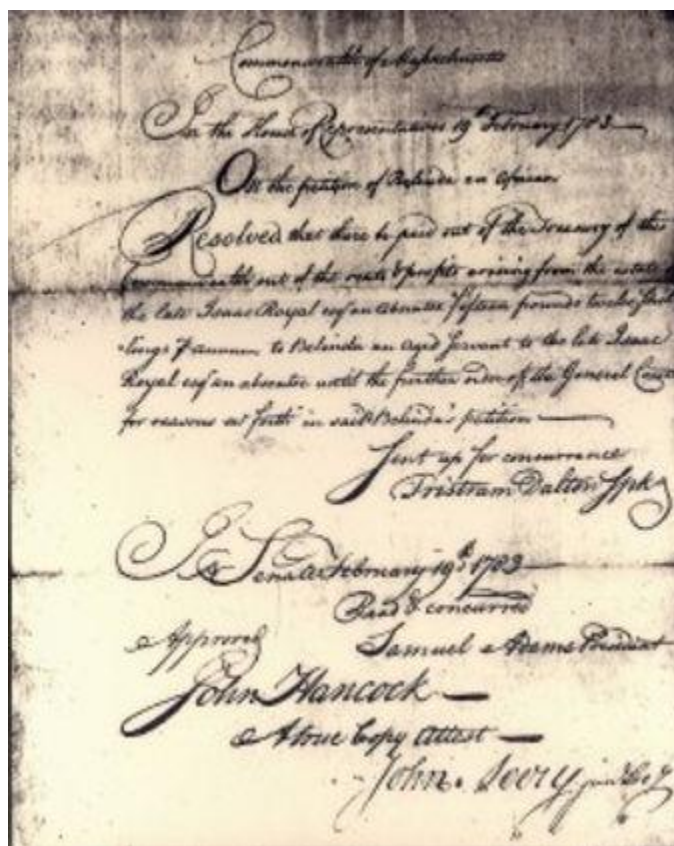 Commonwealth of Massachusetts
In the House of Representatives 19th February 1783
On the petition of Belinda an African
Resolved that there be paid out of the Treasury of this
Commonwealth out of the rents & profits arising from the estate of
the late Isaac Royal esqr an absentee fifteen pounds twelve shil
lings pr annum to Belinda an aged servant to the late Isaac
Royal esqr an absentee until the further order of the General Court
for reasons set forth in said Belinda's petition
Sent up for concurrence
Tristram Dalton Spkr
In Senate February 19th 1783
Read & concurred
Approved
Samuel Adams President
John Hancock
A true Copy Attest
John Avery junr Secy